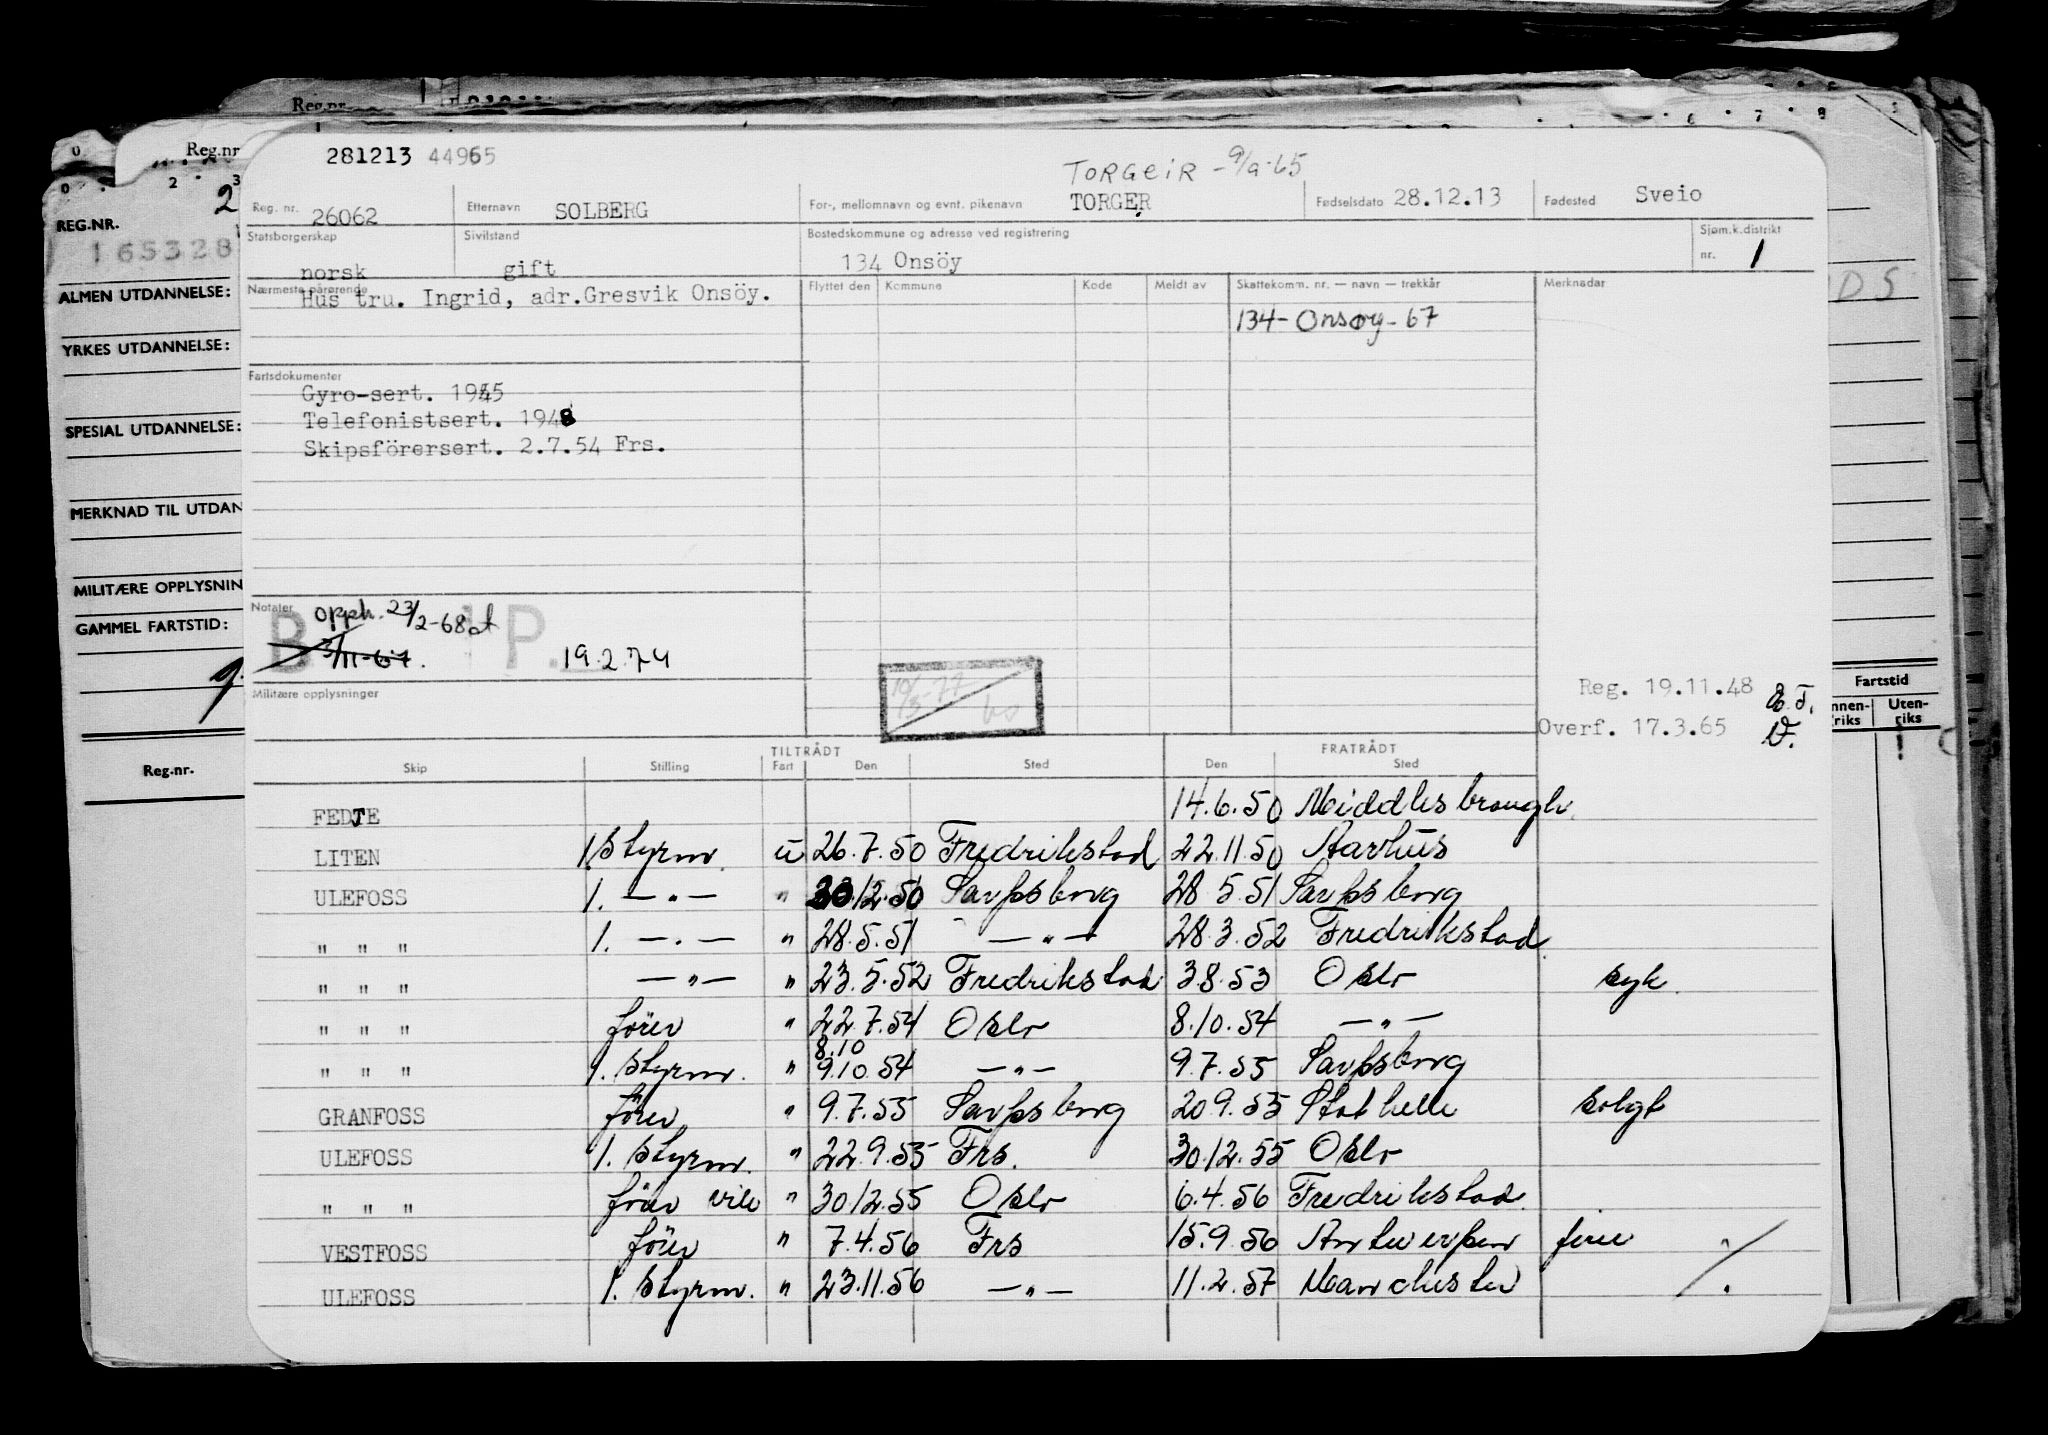 Reg.nr.
Reg.nr
REG.NR.
165328
ALMEN UTDANNELSE:
YRKES UTDANNELSE:
SPESIAL UTDANNELSE:
MERKNAD TIL UTDAN
MILITÆRE OPPLYSNIN
GAMMEL FARTSTID:
Reg.nr.
281213 44965
TORGEIR - 9/9-65
Reg. nr. 26062 Etternavn SOLBERG For-, mellomnavn og evnt. pikenavn TORGER Fødselsdato 28.12.13 Fødested Sveio
Statsborgerskap Sivilstand Bostedskommune og adresse ved registrering Sjøm.k.distrikt
norsk gift 134 Onsöy nr. 1
Nærmeste pårørende Flyttet den Kommune Kode Meldt av Skattekomm. nr. — navn — trekkår Merknader
Hustru. Ingrid, adr.Gresvik Onsöy.
134- Onsøy - 67
Fartsdokumenter
Gyro-sert. 1945
Telefonistsert. 1948
Skipsförersert. 2.7.54 Frs.
Notater Opph. 23/2-68
B P. 3/11-67. 19.2.74
10/3-77
Militære opplysninger
Reg. 19.11.48
Overf. 17.3.65
Fartstid
nnen-riks Uten-riks
TILTRÅDT FRATRÅDT
Skip Stilling Fart Den Sted Den Sted
FEDTE 14.6.50 Middlesbrough
LITEN 1. Styrm. u 26.7.50 Fredrikstad 22.11.50 Aarhus
ULEFOSS 1. —"— " 30.12.50 Sarpsborg 28.5.51 Sarpsborg
" " " 1. —"— " 28.5.51 —"— 28.3.52 Fredrikstad
" " " —"— " 23.5.52 Fredrikstad 3.8.53 Oslo syk
" " " förer " 22.7.54 Oslo 8.10.54 —"—
8.10
" " " 1. Styrm. " 9.10.54 —"— 9.7.55 Sarpsborg
GRANFOSS förer " 9.7.55 Sarpsborg 20.9.55 Stathelle solgt
ULEFOSS 1. Styrm. " 22.9.55 Frs. 30.12.55 Oslo
" " " förer vik " 30.12.55 Oslo 6.4.56 Fredrikstad
VESTFOSS förer " 7.4.56 Frs 15.9.56 Antwerpen ferie
ULEFOSS 1. Styrm. " 23.11.56 —"— 11.2.57 Manchester